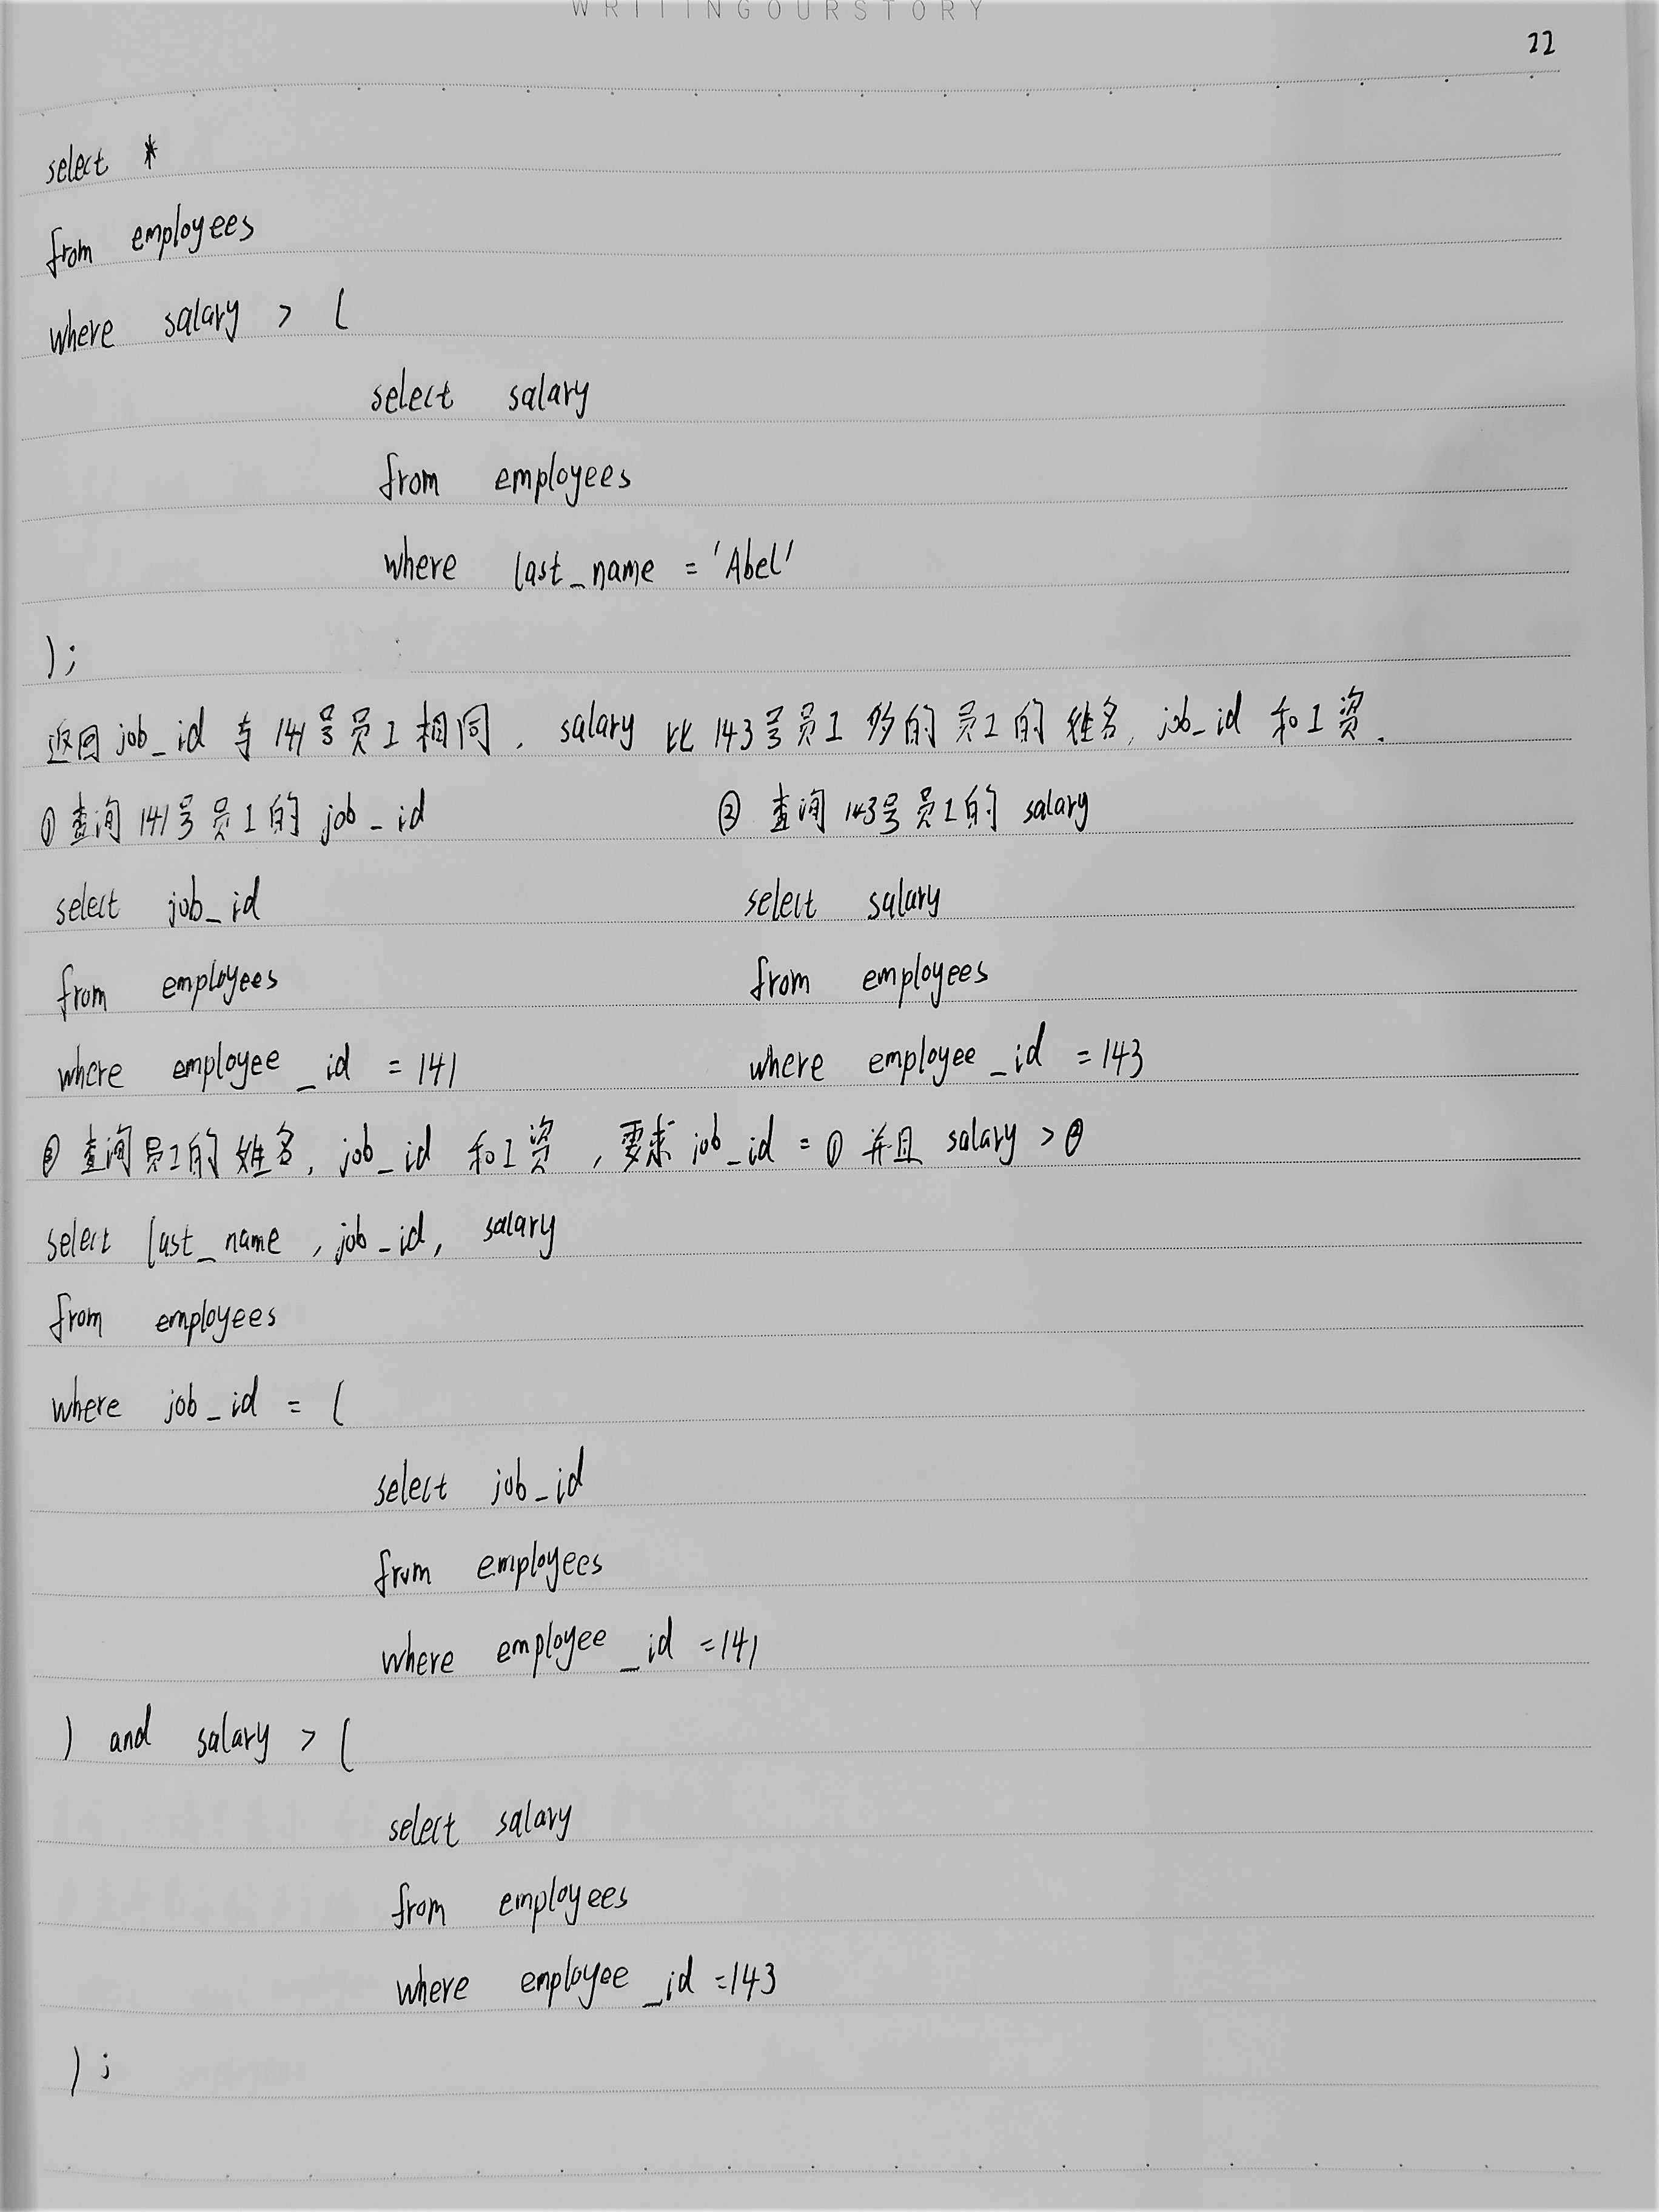 WRITINGOURSTORY
22
select *
from employees
where salary > (
select salary
from employees
where last_name = 'Abel'
);
返回 job_id 与 141号员工相同, salary 比 143号员工多的员工的姓名, job_id 和工资.
① 查询 141号员工的 job_id
② 查询 143号员工的 salary
select job_id
select salary
from employees
from employees
where employee_id = 141
where employee_id = 143
③ 查询员工的姓名, job_id 和工资, 要求 job_id = ① 并且 salary > ②
select last_name, job_id, salary
from employees
where job_id = (
select job_id
from employees
where employee_id = 141
) and salary > (
select salary
from employees
where employee_id = 143
);